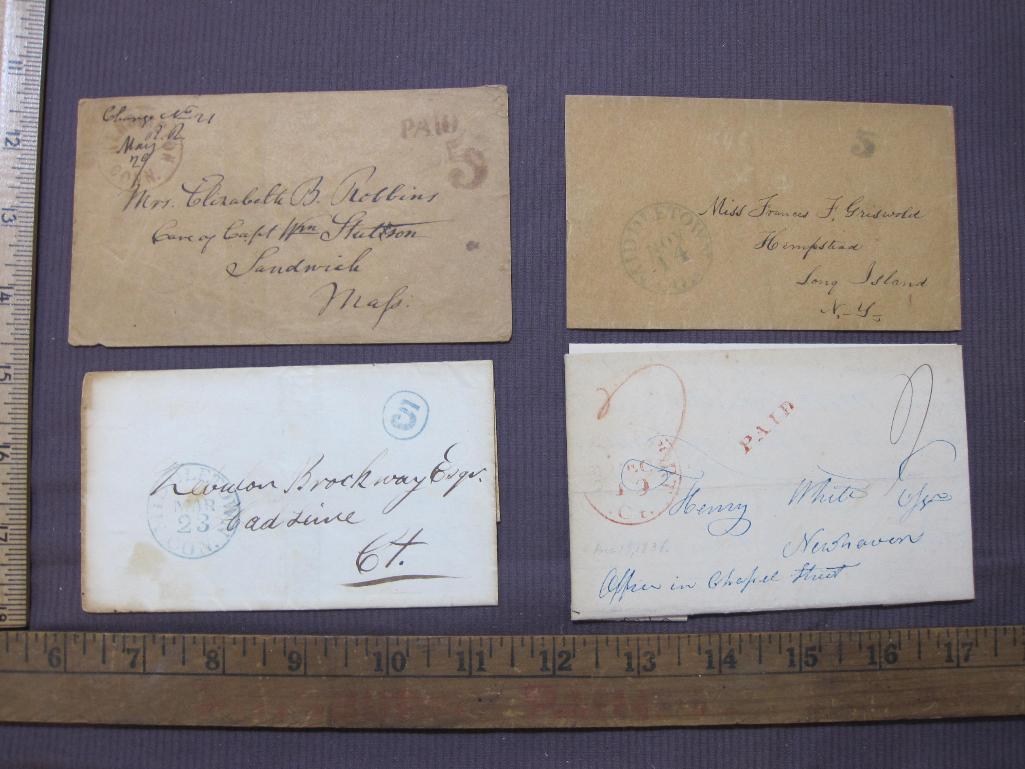 May
29
CONN.
PAID
5
Mrs. Elizabeth B. Robbins
Care of Capt Wm Stutson
Sandwich
Mass.
5
MIDDLETOWN
NOV
14
Miss Frances F. Griswold
Hempstead
Long Island
N. Y.
5
MIDDLETOWN
MAR
23
CON.
Brockway Esqr.
Ct.
PAID
9
Ct.
Henry White Esqr
Newhaven
Office in Chapel Street
12
13
14
15
16
17
18
6 7 8 9 10 11 12 13 14 15 16 17